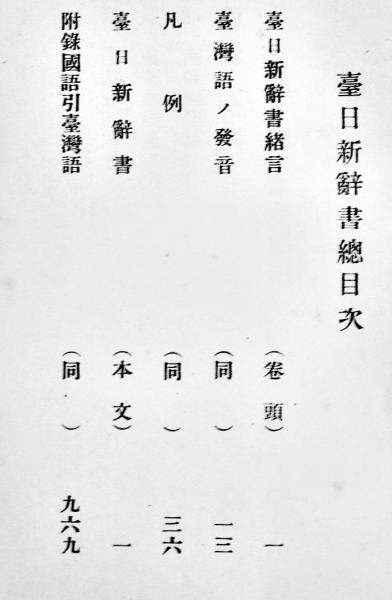 臺日新辭書總目次
臺日新辭書緒言（卷頭）一
臺灣語ノ發音（同）一三
凡例（同）三六
臺日新辭書（本文）一
附錄國語引臺灣語（同）九六九